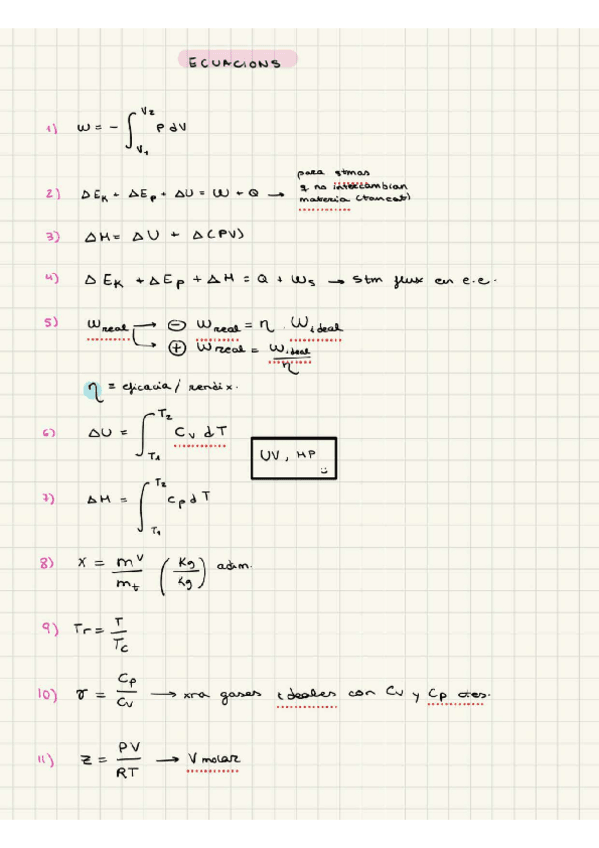 ECUACIONS
1) W = - ∫_{V1}^{V2} P dV
2) ΔEk + ΔEp + ΔU = W + Q → para stmas
q no intercambian
materia (tancat)
3) ΔH = ΔU + Δ(PV)
4) ΔEk + ΔEp + ΔH = Q + Ws → stm flux en e.e.
5) Wreal → ⊖ Wreal = η · Wideal
→ ⊕ Wreal = Wideal / η
η = eficacia / rendix.
6) ΔU = ∫_{T1}^{T2} Cv dT
UV, HP
7) ΔH = ∫_{T1}^{T2} Cp dT
8) x = m^v / mt (Kg / Kg) adim.
9) Tr = T / Tc
10) γ = Cp / Cv → xra gases ideales con Cv y Cp ctes.
11) Z = PV / RT → V molar